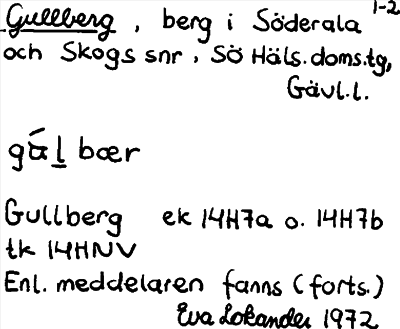 Gullberg, berg i Söderala 1-2
och Skogs snr, Sö Häls. doms.tg,
Gävl.l.
gu̇́l bær
Gullberg ek 14H7a o. 14H7b
tk 14HNV
Enl. meddelaren fanns (forts.)
Eva Lokander 1972